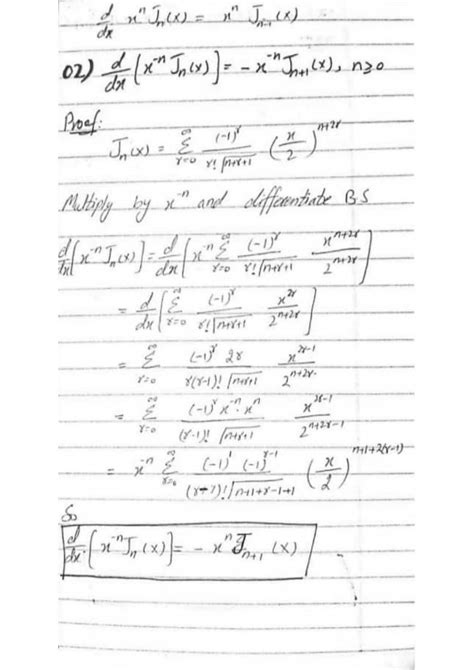 d/dx xⁿ Jₙ(x) = xⁿ Jₙ₋₁(x)
02) d/dx [x⁻ⁿ Jₙ(x)] = - x⁻ⁿ Jₙ₊₁(x), n≥0
Proof:
Jₙ(x) = Σ_{r=0}^{∞} (-1)^r / (r! Γ(n+r+1)) (x/2)^{n+2r}
Multiply by x⁻ⁿ and differentiate B.S
d/dx [x⁻ⁿ Jₙ(x)] = d/dx [x⁻ⁿ Σ_{r=0}^{∞} (-1)^r / (r! Γ(n+r+1)) x^{n+2r} / 2^{n+2r}]
= d/dx [Σ_{r=0}^{∞} (-1)^r / (r! Γ(n+r+1)) x^{2r} / 2^{n+2r}]
= Σ_{r=0}^{∞} (-1)^r 2r / (r(r-1)! Γ(n+r+1)) x^{2r-1} / 2^{n+2r}
= Σ_{r=0}^{∞} (-1)^r x⁻ⁿ · xⁿ / ((r-1)! Γ(n+r+1)) x^{2r-1} / 2^{n+2r-1}
= x⁻ⁿ Σ_{r=0}^{∞} (-1)^1 (-1)^{r-1} / ((r-1)! Γ(n+1+r-1+1)) (x/2)^{n+1+2(r-1)}
So
d/dx [x⁻ⁿ Jₙ(x)] = - xⁿ Jₙ₊₁(x)